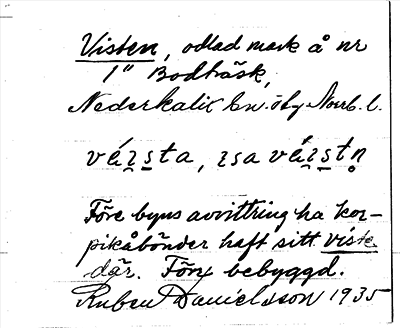 Visten, odlad mark å nr
1" Bodträsk,
Nederkalix sn. öby Norrb. l.
Före byns avvittring ha kor-
pikåbönder haft sitt viste
där. Förr bebyggd.
Ruben Danielsson 1935